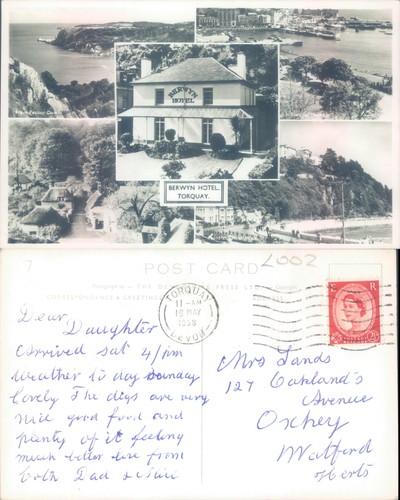 BERWYN
HOTEL
BERWYN HOTEL,
TORQUAY.
7
POST CARD
L002
CORRESPONDENCE & GREETINGS
TORQUAY
11-AM
19 MAY
1958
DEVON
Dear,
Daughter
arrived sat 4/pm
weather to day Sunday
lovely The digs are very
nice good food and
plenty of it feeling
much better love from
both Dad &
Mrs Sands
127 Oakland's
Avenue
Oxhey
Watford
Herts